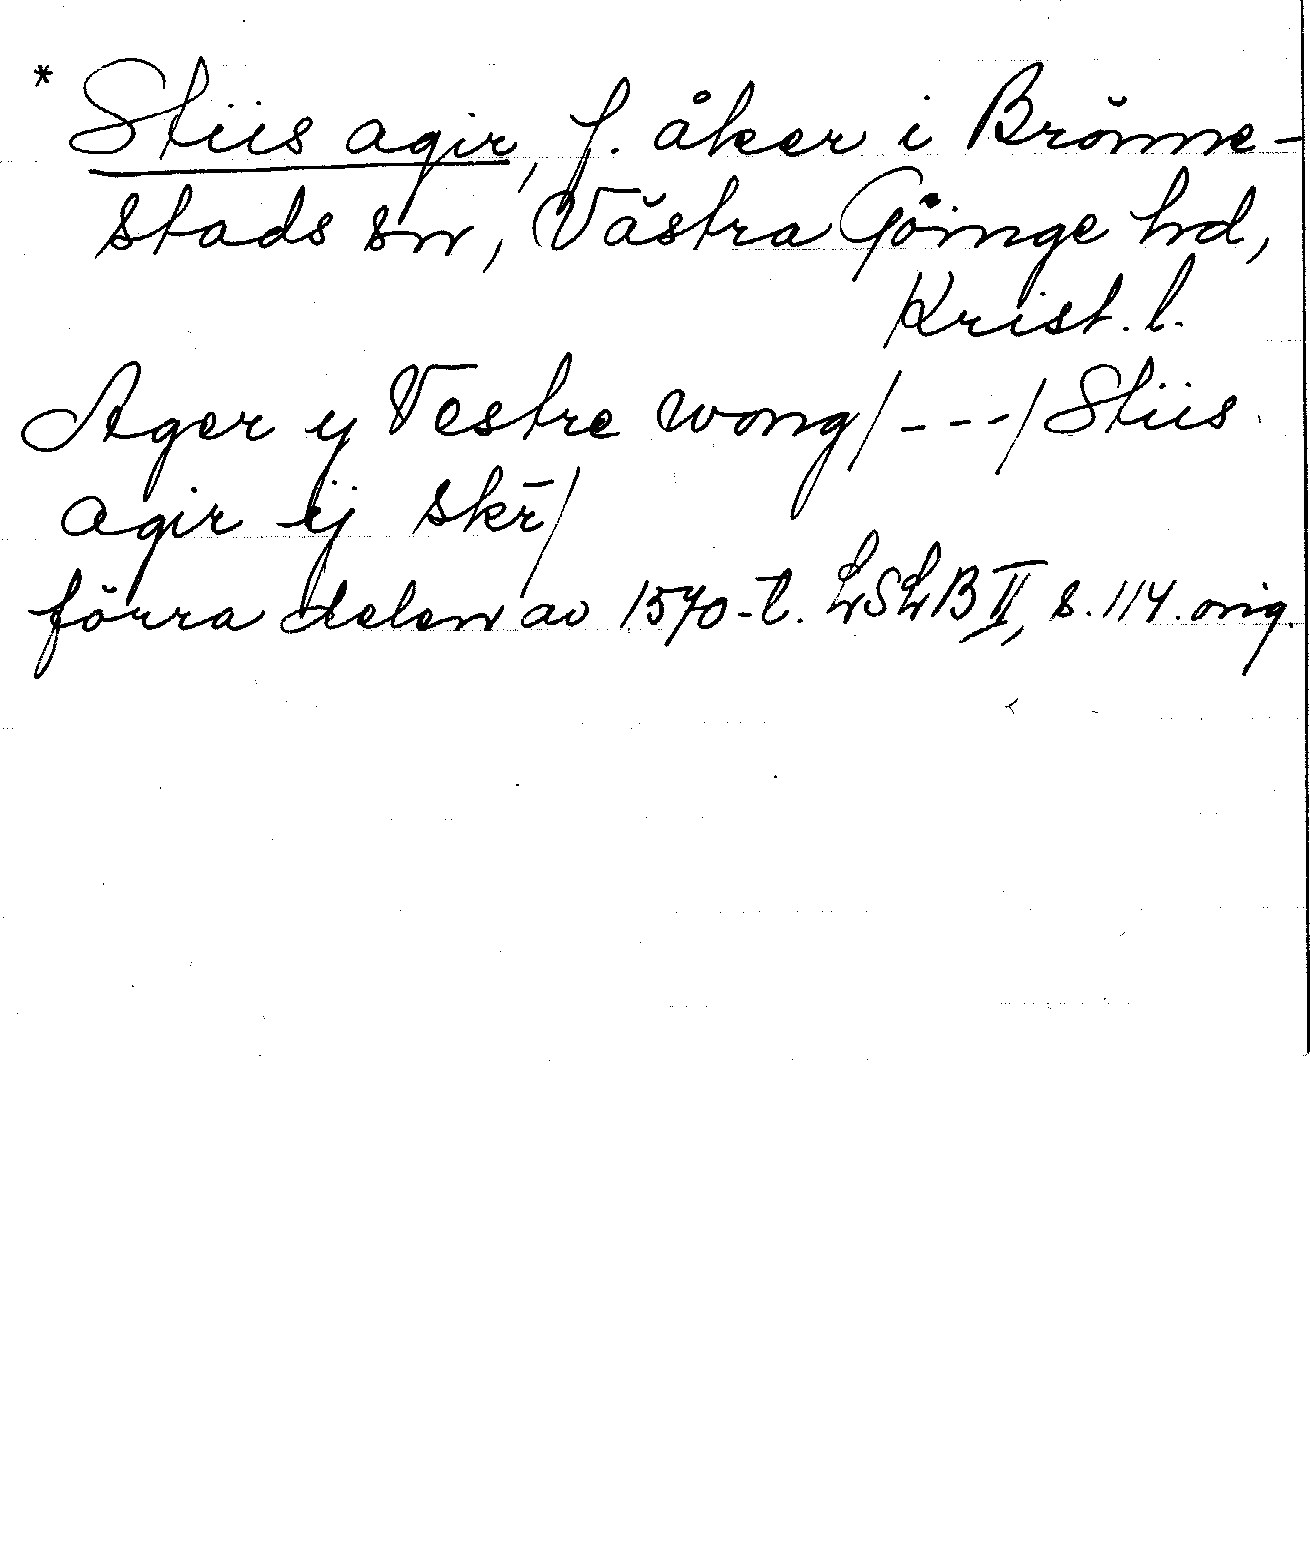 * Stiis agir, f. åker i Brönne-
stads sn, Västra Göinge hd,
Krist. l.
Ager y Vestre wong/---/Stiis
agir ij skr̄/
förra delen av 1570-t. LSLB II, s. 114. orig.